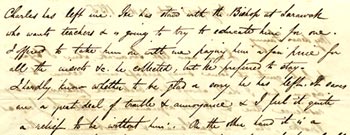 Charles has left me. He has staid with the Bishop at Sarawak
who wants teachers & is going to try to educate him for one.
I offered to take him on with me paying him a fair price for
all the insects &c. he collected, but he preferred to stay.
I hardly know whether to be glad or sorry he has left. It saves
me a great deal of trouble & annoyance & I feel it quite
a relief to be without him. On the other hand it is a